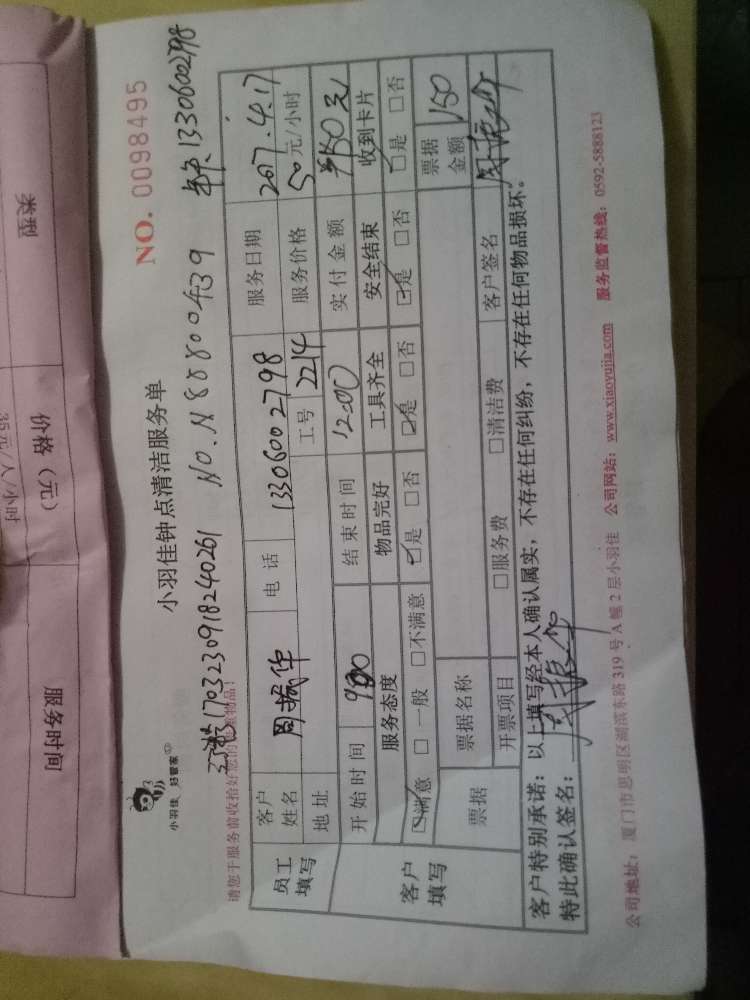 类型
价格（元）
服务时间
35元/人/小时
小羽佳 好管家
小羽佳钟点清洁服务单
NO. 0098495
1703230918240261 NO.N80800439 13306002798
请您于服务前收拾好您的贵重物品！
员工填写
客户姓名 周振华 电话 13306002798 服务日期 2017.4.17
地址 工号 2214 服务价格 50元/小时
开始时间 9:00 结束时间 12:00 实付金额 150元
客户填写
服务态度 物品完好 工具齐全 安全结束 收到卡片
☑满意 □一般 □不满意 ☑是 □否 ☑是 □否 ☑是 □否 ☑是 □否
票据 票据名称 票据金额 150
开票项目 □服务费 □清洁费 客户签名 周振华
客户特别承诺：以上填写经本人确认属实，不存在任何纠纷，不存在任何物品损坏。
特此确认签名： 周振华
公司地址：厦门市思明区湖滨东路319号A幢2层小羽佳 公司网站：www.xiaoyujia.com 服务监督热线：0592-5888123